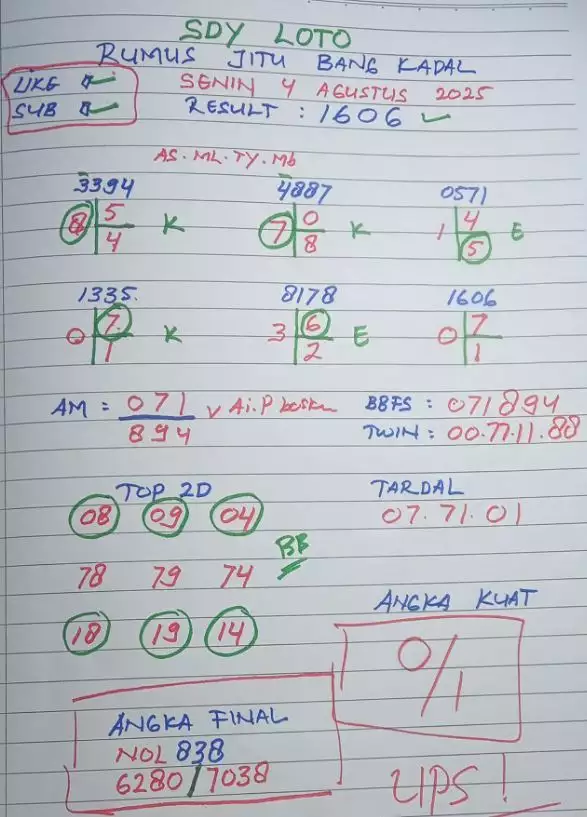 SDY LOTO
RUMUS JITU BANG KADAL
LIKE
SENIN 4 AGUSTUS 2025
SUB
RESULT : 1606 ✓
AS. ML. TY. Mb
3394 4887 0571
8 5 4 K
7 0 8 K
1 4 5 E
1335. 8178 1606
0 7 1 K
3 6 2 E
0 7 1
AM = 071 / 894 v Ai. P
BBFS : 071894
TWIN : 00.77.11.88
TOP 2D
TARDAL
08 09 04
07. 71. 01
78 79 74 BB
ANGKA KUAT
18 19 14
0/1
ANGKA FINAL
NOL 838
6280/7038
UPS!